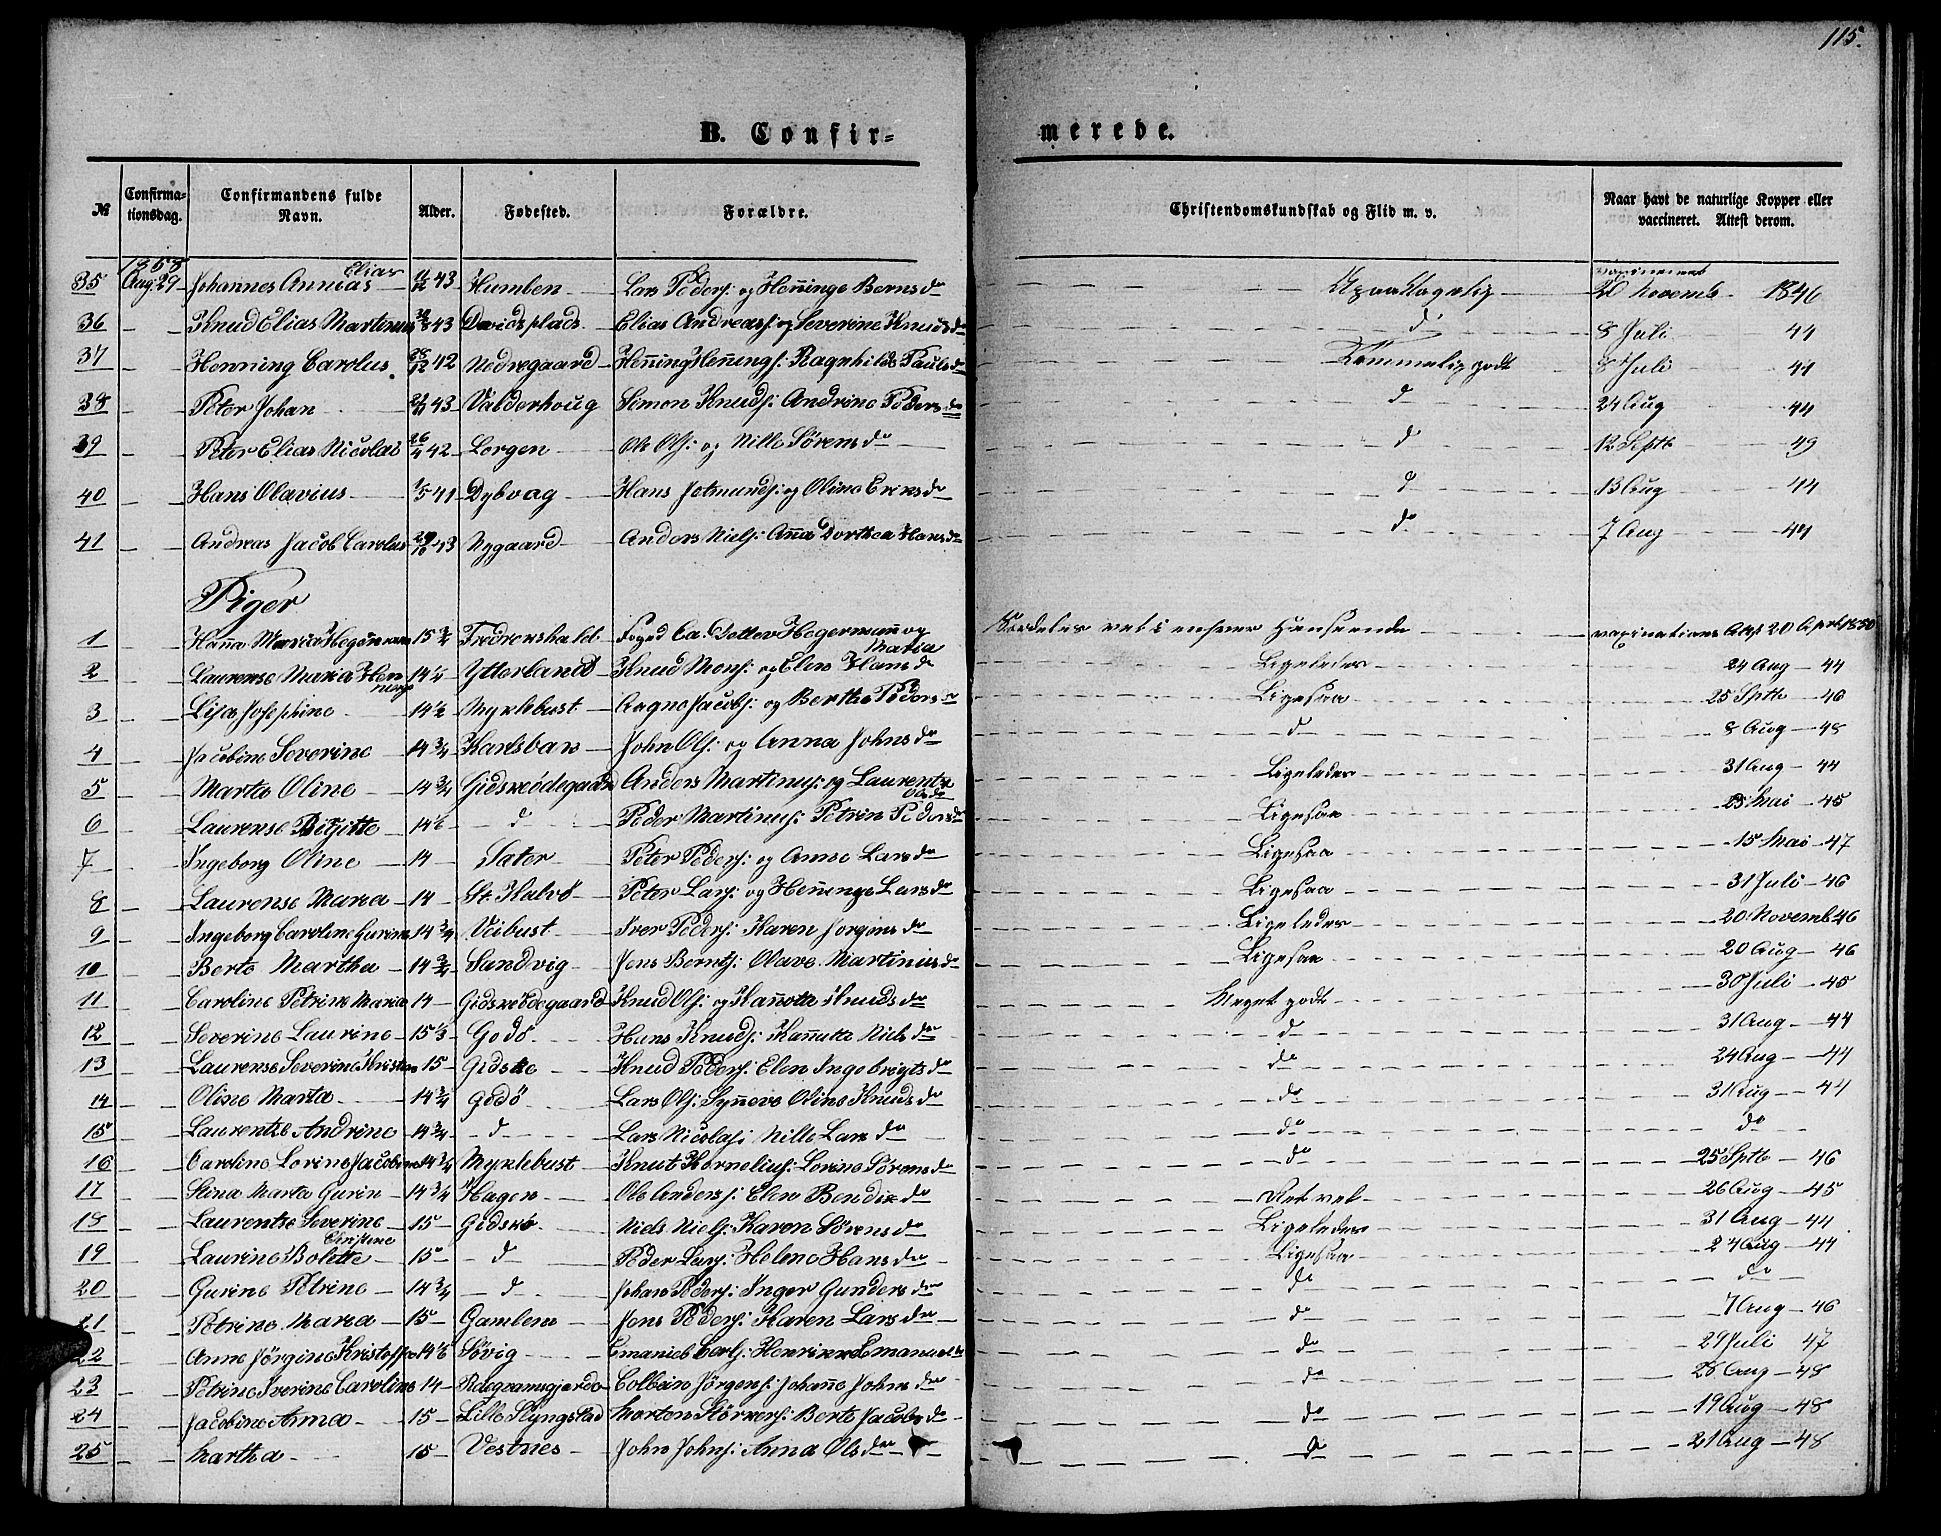 115.
B. Confir=
merede.
№ Confirma-tionsdag. Confirmandens fulde Navn. Alder. Fødested. Forældre. Christendomskundskab og Flid m. v. Naar havt de naturlige Kopper eller vaccineret. Attest derom.
1858 Elias
35 Aug. 29 Johannes Annias 43 Humlen Lars Peders: og Henninge Bernsdr 20 Novemb. 1846
36 Knud Elias Martinus 43 Davidsplads Elias Andreas: og Severine Knudsdr d 8 Juli 44
37 Henning Carolus 42 Nedregaard Henning Hennings: Ragnhilde Paulsdr Temmelig godt 8 Juli 44
38 Peter Johan 43 Valderhoug Simon Knuds: Andrine Pedersdr d 24 Aug 44
39 Peter Elias Nicolai 26/4 42 Lorgen Ole Ols: og Nille Sørensdr d 12 Septb 49
40 Hans Olavius 1/5 41 Dybvag Hans Jetmunds: og Oline Eriksdr d 13 Aug 44
41 Andreas Jacob Carolus 43 Nygaard Anders Niels: Anna Dorthea Hansdr d 7 Aug 44
Piger
1 Hanna Maria Hegermann 15 3/4 Fredrikshald Foged Ca. Detlev Hegermann og Maria Særdeles vel i enhver Henseende vaxinations Att. 20 April 1850
2 Laurense Maria Hen- 14 1/2 Ytterland Knud Mons: og Elen Hansdr Ligeledes 24 Aug 44
3 Lisa Josephine 14 1/2 Myklebust Aagne Jacobs: og Berthe Pedersdr Ligesaa 25 Septb 46
4 Jacobine Severine 14 3/4 Karlsbar John Ols: og Anna Johnsdr d 8 Aug 48
5 Marta Oline 14 3/4 Gidskeødegaard Anders Martinus: og Laurentze Olsdr Ligeledes 31 Aug 44
6 Laurense Birgitte 14 1/2 d Peder Martinus: Petrin Pedersdr Ligesaa 25 Mai 45
7 Ingeborg Oline 14 Sæter Peter Peders: og Anne Larsdr Ligesaa 15 Mai 47
8 Laurense Maria 14 St. Kalvø Peter Lars: og Henninge Larsdr Ligesaa 31 Juli 46
9 Ingeborg Caroline Gurine 14 3/4 Veibust Iver Peders: Karen Jørginsdr Ligeledes 20 Novemb 46
10 Berte Martha 14 3/4 Sandvig Jens Bernts: Olave Martinusdr Ligesaa 20 Aug 46
11 Caroline Petrine Maria 14 Gidskeødegaard Knud Ols: og Hannete Knudsdr Meget godt 30 Juli 45
12 Severine Laurine 15 1/3 Godø Hans Knuds: Hannette Nielsdr d 31 Aug 44
13 Laurense Severine Kristine 15 Gidske Knud Peders: Elen Ingebrigtsdr do 24 Aug 44
14 Oline Marta 14 3/4 Godø Lars Ols: Synneve Oline Knudsdr do 31 Aug 44
15 Laurentze Andrine 14 3/4 d Lars Nicolas: Nille Larsdr do do
16 Caroline Lovine Jacobine 14 3/4 Myklebust Knut Kornelius: Lovine Sørensdr do 25 Septb 46
17 Stina Marta Gurin 14 3/4 Hagen Ole Anders: Elen Bendiksdr Ret vel 26 Aug 45
18 Laurentze Severine 15 Gidskø Niels Niels: Karen Sørensdr Ligeledes 31 Aug 44
19 Laurine Bolette Christine 15 d Peder Lars: Helene Hansdr Ligesaa 24 Aug 44
20 Gurine Petrine 14 3/4 d Johan Peders: Inger Gundersdr do do
21 Petrine Maria 15 Gamlem Jens Peders: Karen Larsdr d 7 Aug 46
22 Anne Jørgine Kristoffa 14 1/2 Søvig Emaniel Carls: Henrikke Emanuelsdr do 29 Juli 47
23 Petrine Iverine Caroline 14 Colbein Jørgens: Johanne Johnsdr do 28 Aug 48
24 Jacobine Anna 15 Lille Slyngstad Morten Størkers: Berte Jacobsdr do 19 Aug 48
25 Martha 15 Vestnes John Johns: Anna Olsdr d 21 Aug 48